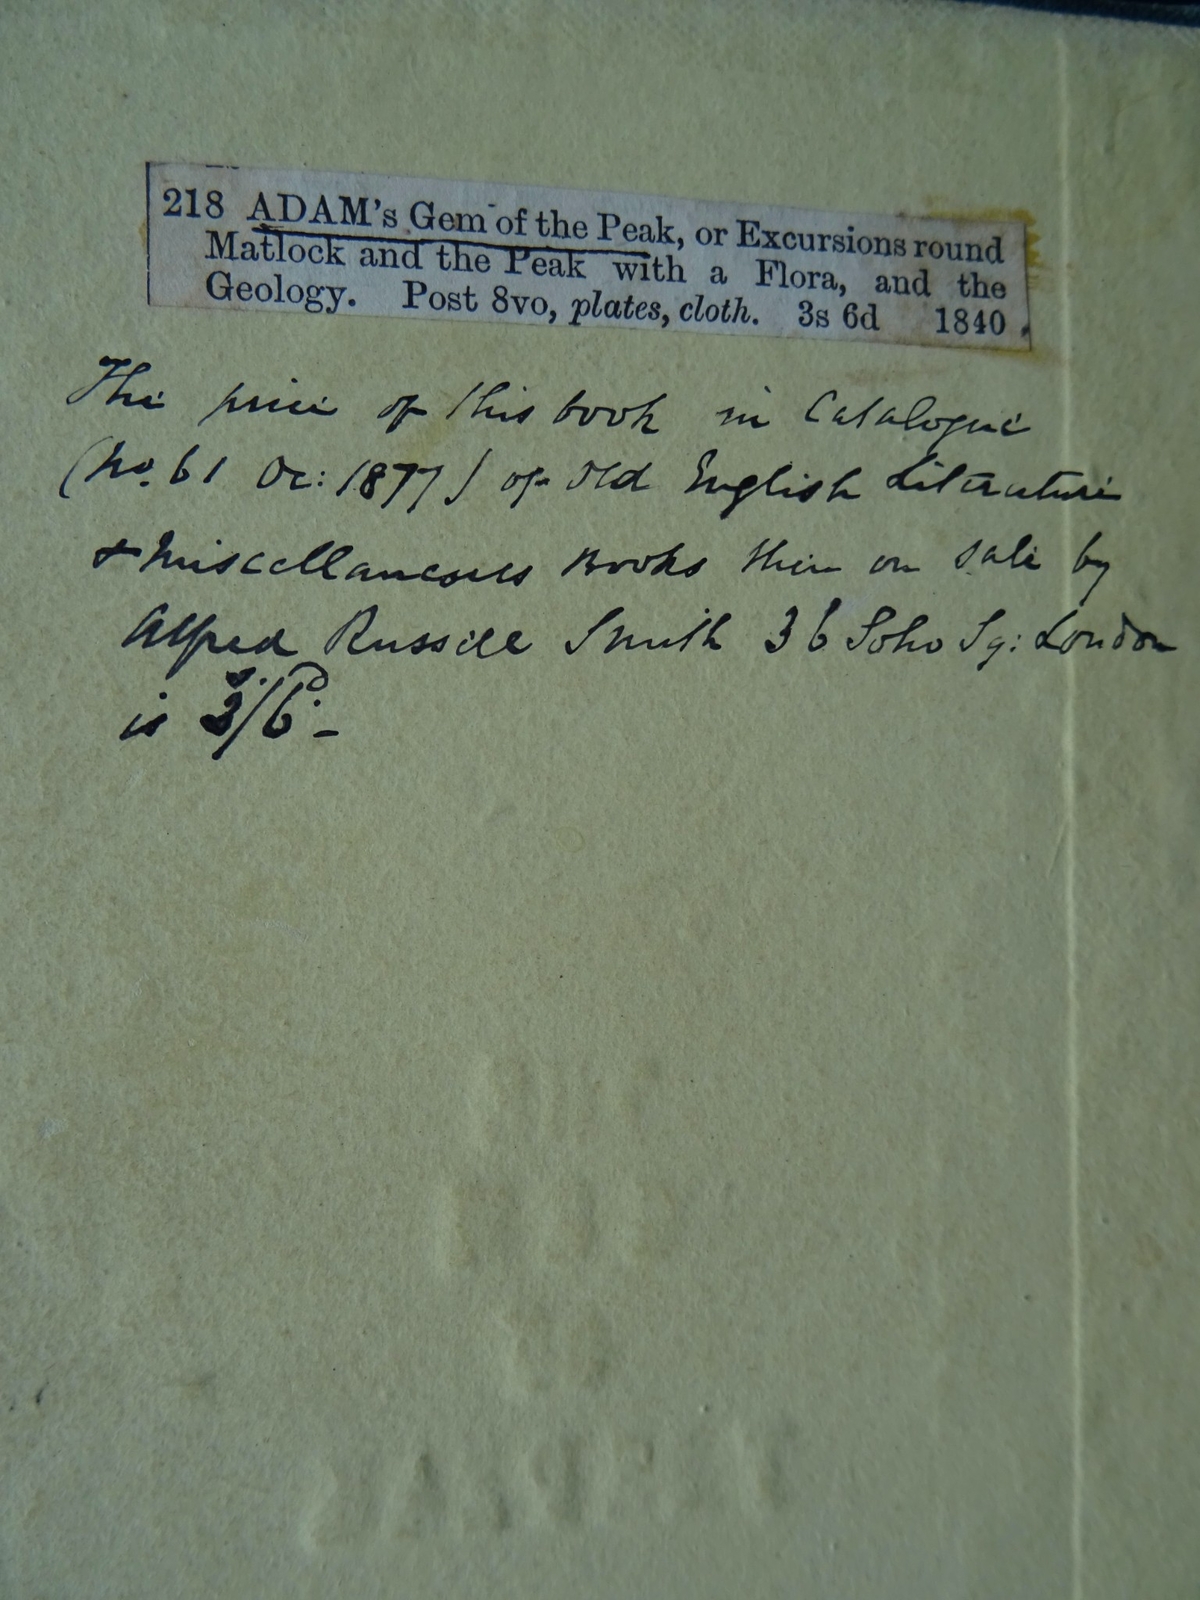 218 ADAM's Gem of the Peak, or Excursions round
Matlock and the Peak with a Flora, and the
Geology. Post 8vo, plates, cloth. 3s 6d 1840.
The price of this book in Catalogue
(No. 61 Oc: 1877) of Old English Literature
& Miscellaneous Books then on sale by
Alfred Russell Smith 36 Soho Sq: London
is 3s./6d. -